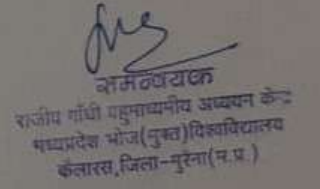 समन्वयक
राजीव गाँधी बहुमाध्यमीय अध्ययन केन्द्र
मध्यप्रदेश भोज(मुक्त)विश्वविद्यालय
कैलारस,जिला-मुरैना(म.प्र.)